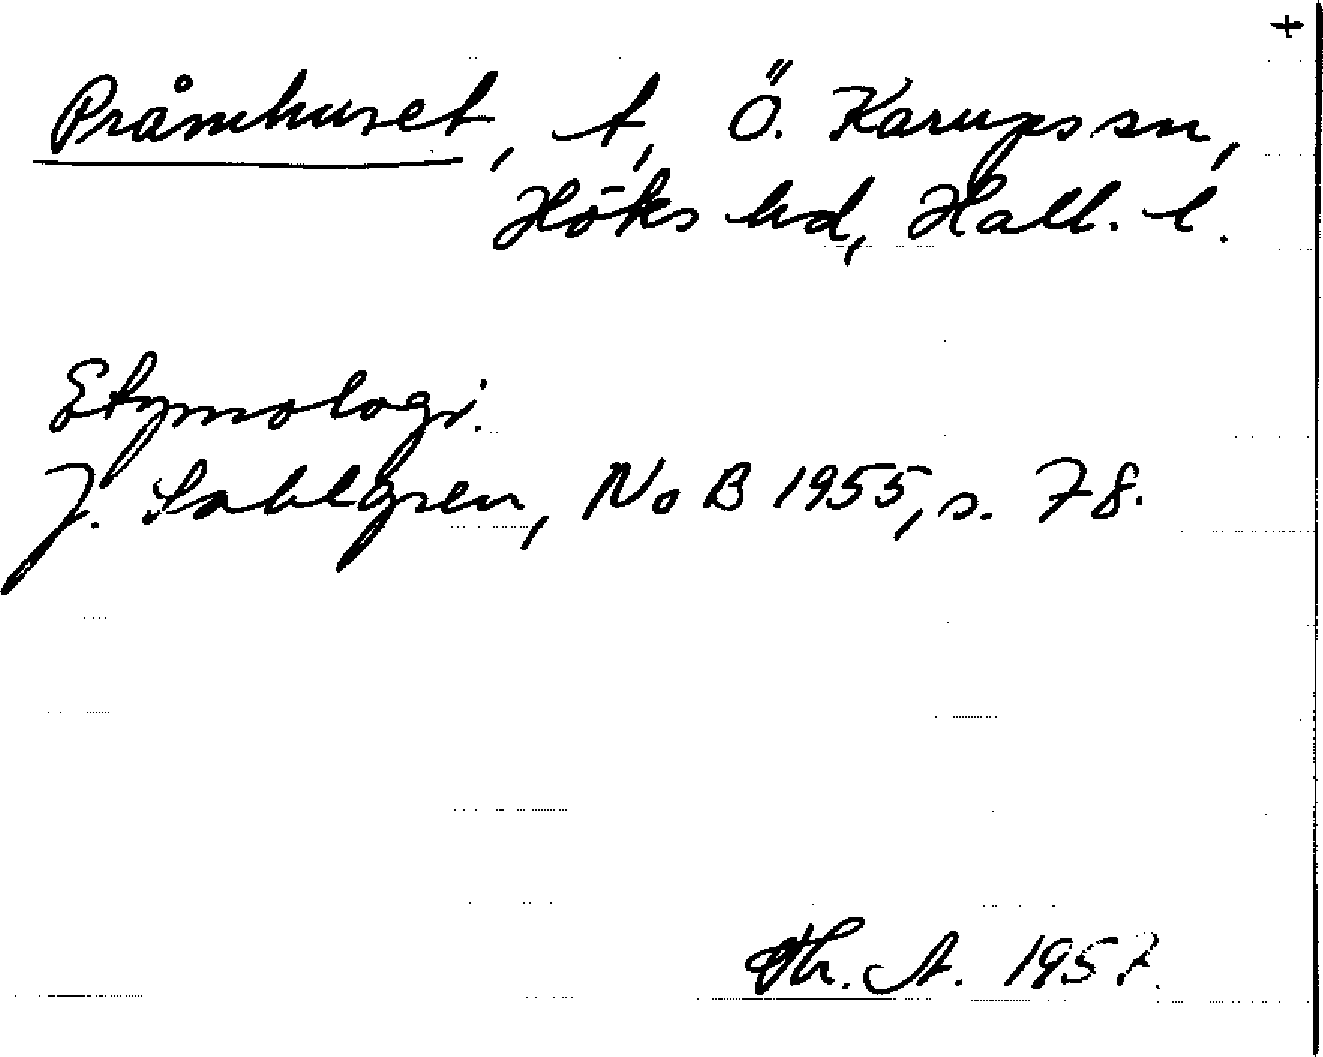 +
Pråmhuset, t, Ö. Karups sn,
Höks hd, Hall. l.
Etymologi.
J. Sahlgren, NoB 1955, s. 78.
Th. A. 1957.